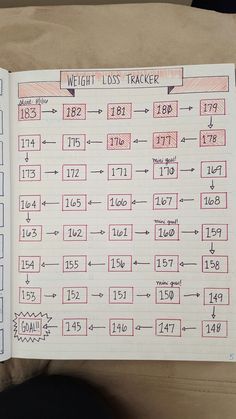 WEIGHT LOSS TRACKER
183 182 181 180 179
174 175 176 177 178
mini goal!
173 172 171 170 169
164 165 166 167 168
mini goal!
163 162 161 160 159
154 155 156 157 158
mini goal!
153 152 151 150 149
GOAL!! 145 146 147 148
5